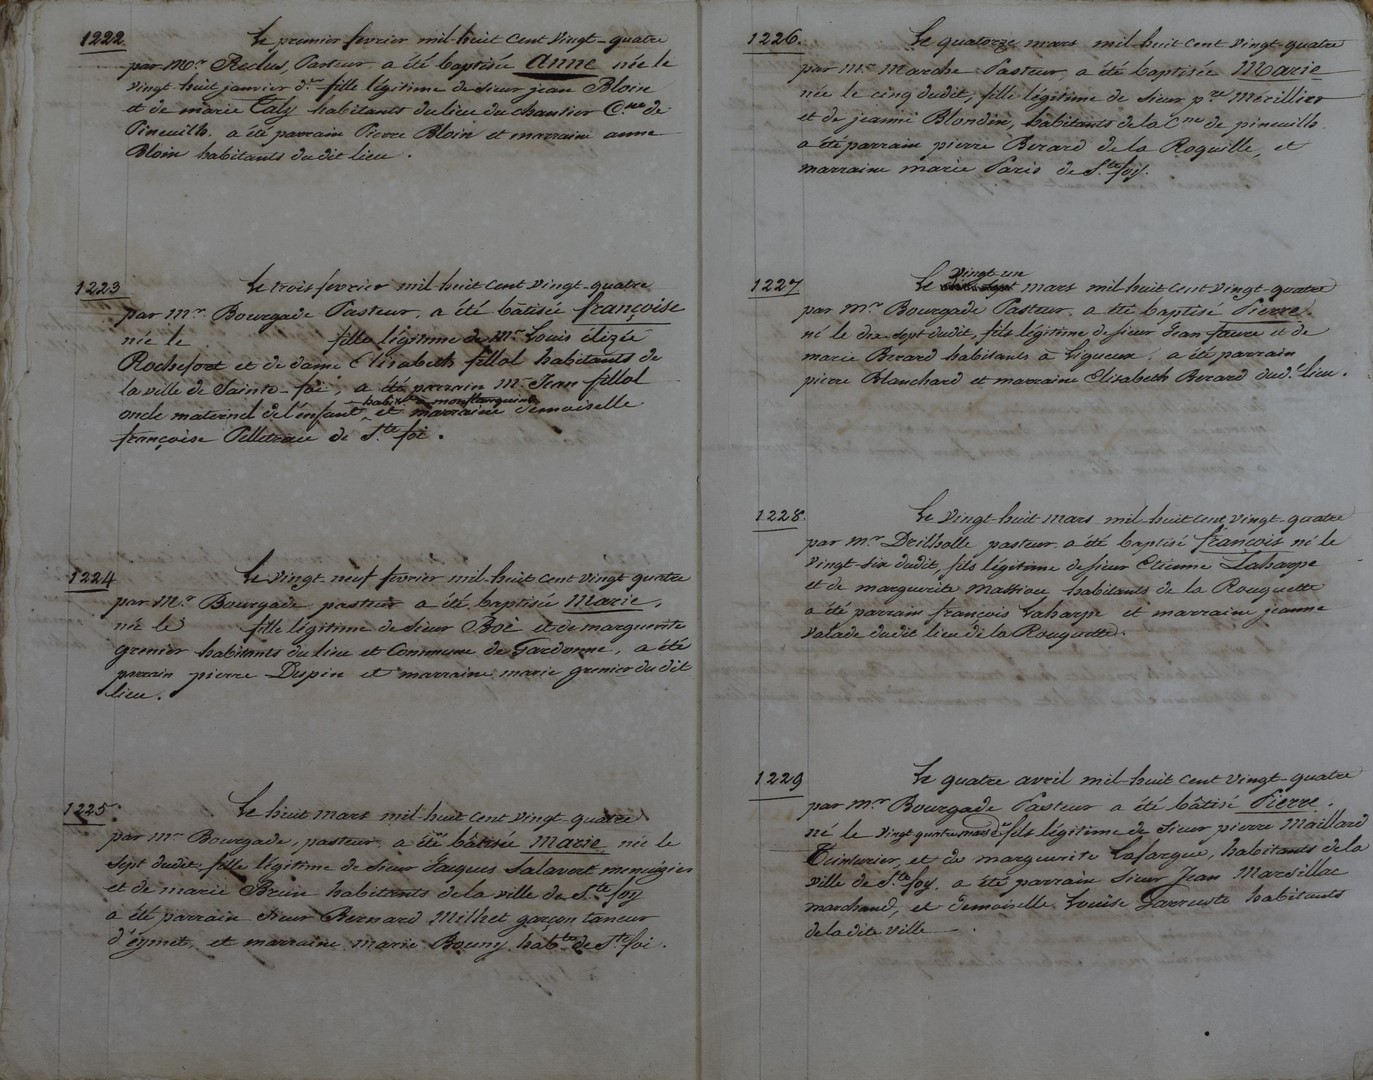 1222. Le premier fevrier mil-huit cent vingt-quatre
par Mr. Reclus, Pasteur, a été baptisée Anne née le
vingt huit janvier dr. fille légitime de Sieur jean Bloin
et de marie Taly habitants du lieu du chantier Cne. de
Pineuilh. a été parrain Pierre Bloin et marraine anne
Bloin habitants dudit lieu.
1223 Le trois fevrier mil-huit cent vingt-quatre
par mr. Bourgade Pasteur, a été bâtisée françoise
née le fille légitime de Mr. Louis élizée
Rochefort et de dame Elisabeth fillol habitants de
la ville de Sainte-foi, a été parrain Mr. Jean fillol
habitt. à monflanquin
oncle maternel de l'enfant, et marraine demoiselle
françoise Pelletreau de Ste. foi.
1224 Le vingt-neuf fevrier mil-huit cent vingt quatre
par Mr. Bourgade pasteur a été baptisée Marie,
née le fille légitime de Sieur Boé et de marguerite
grenier habitants du lieu et Commune de Gardonne, a été
parrain pierre Dupin et marraine marie grenier dudit
lieu.
1225. Le huit mars mil-huit cent vingt-quatre
par mr Bourgade, pasteur, a été bâtisée Marie née le
Sept dudit, fille légitime de Sieur Jacques Salavert menuizier
et de marie Brun habitants de la ville de Ste. foy
a été parrain Sieur Bernard Milhet garçon taneur
d'eymet, et marraine marie Bouny habts. de Ste. foi.
1226. Le quatorze mars mil-huit cent vingt-quatre
par Mr. Marche Pasteur, a été baptisée Marie
née le cinq dudit, fille légitime de Sieur pre. Merillier
et de jeanne Blondin, habitants de la Cne de pineuilh.
a été parrain pierre Berard de la Roquille, et
marraine marie Paris de Ste. foy.
vingt-un
1227 Le mars mil-huit cent vingt-quatre
par Mr. Bourgade Pasteur, a été baptisé Pierre.
né le dix-sept dudit, fils légitime de Sieur Jean faure et de
marie Berard habitants à Ligueux, a été parrain
pierre Blanchard et marraine Elisabeth Berard dud. lieu.
1228. Le vingt-huit mars mil-huit cent vingt-quatre
par Mr. Drilholle pasteur, a été baptisé françois né le
vingt-six dudit, fils légitime de Sieur Etienne Laharpe
et de marguerite Mathieu habitants de la Rouquette
a été parrain françois Laharpe et marraine jeanne
Valade dudit lieu de la Rouquette.
1229 Le quatre avril mil-huit cent vingt-quatre
par mr Bourgade Pasteur a été bâtisé Pierre,
né le vingt quatre mars dr fils légitime de Sieur pierre Maillard
Teinturier, et de marguerite Lafargue, habitants de la
ville de Ste. foy, a été parrain Sieur Jean Marsillac
marchand, et demoiselle Louise habitants
de la dite ville.